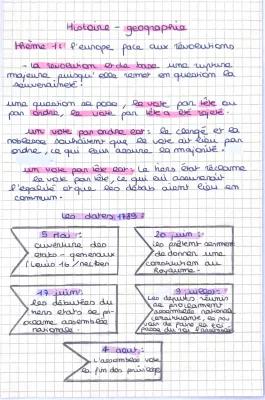 Histoire - geographie
thème 1: l'europe face aux révolutions
- la révolution est de base une rupture
majeure puisqu'elle remet en question la
souveraineté.
une question se pose, le vote par tête ou
par ordre, le vote par tête a été rejeté.
un vote par ordre est: le clergé et la
noblesse souhaitent que le vote ait lieu par
ordre, ce qui leur assure la majorité.
un vote par tête est: Le tiers état réclame
le vote par tête, ce qui assurerait
l'égalité et que les débats aient lieu en
commun.
les dates 1789:
5 mai:
ouverture des
états - généraux
Louis 16
20 juin:
de donner une
constitution au
Royaume.
17 juin:
les députés du
tiers états se pro-
assemblée
nationale.
9 juillet:
les députés réunis
se proclament
assemblée nationale
constituante,
4 aout:
L'assemblée vote
la fin des privilèges